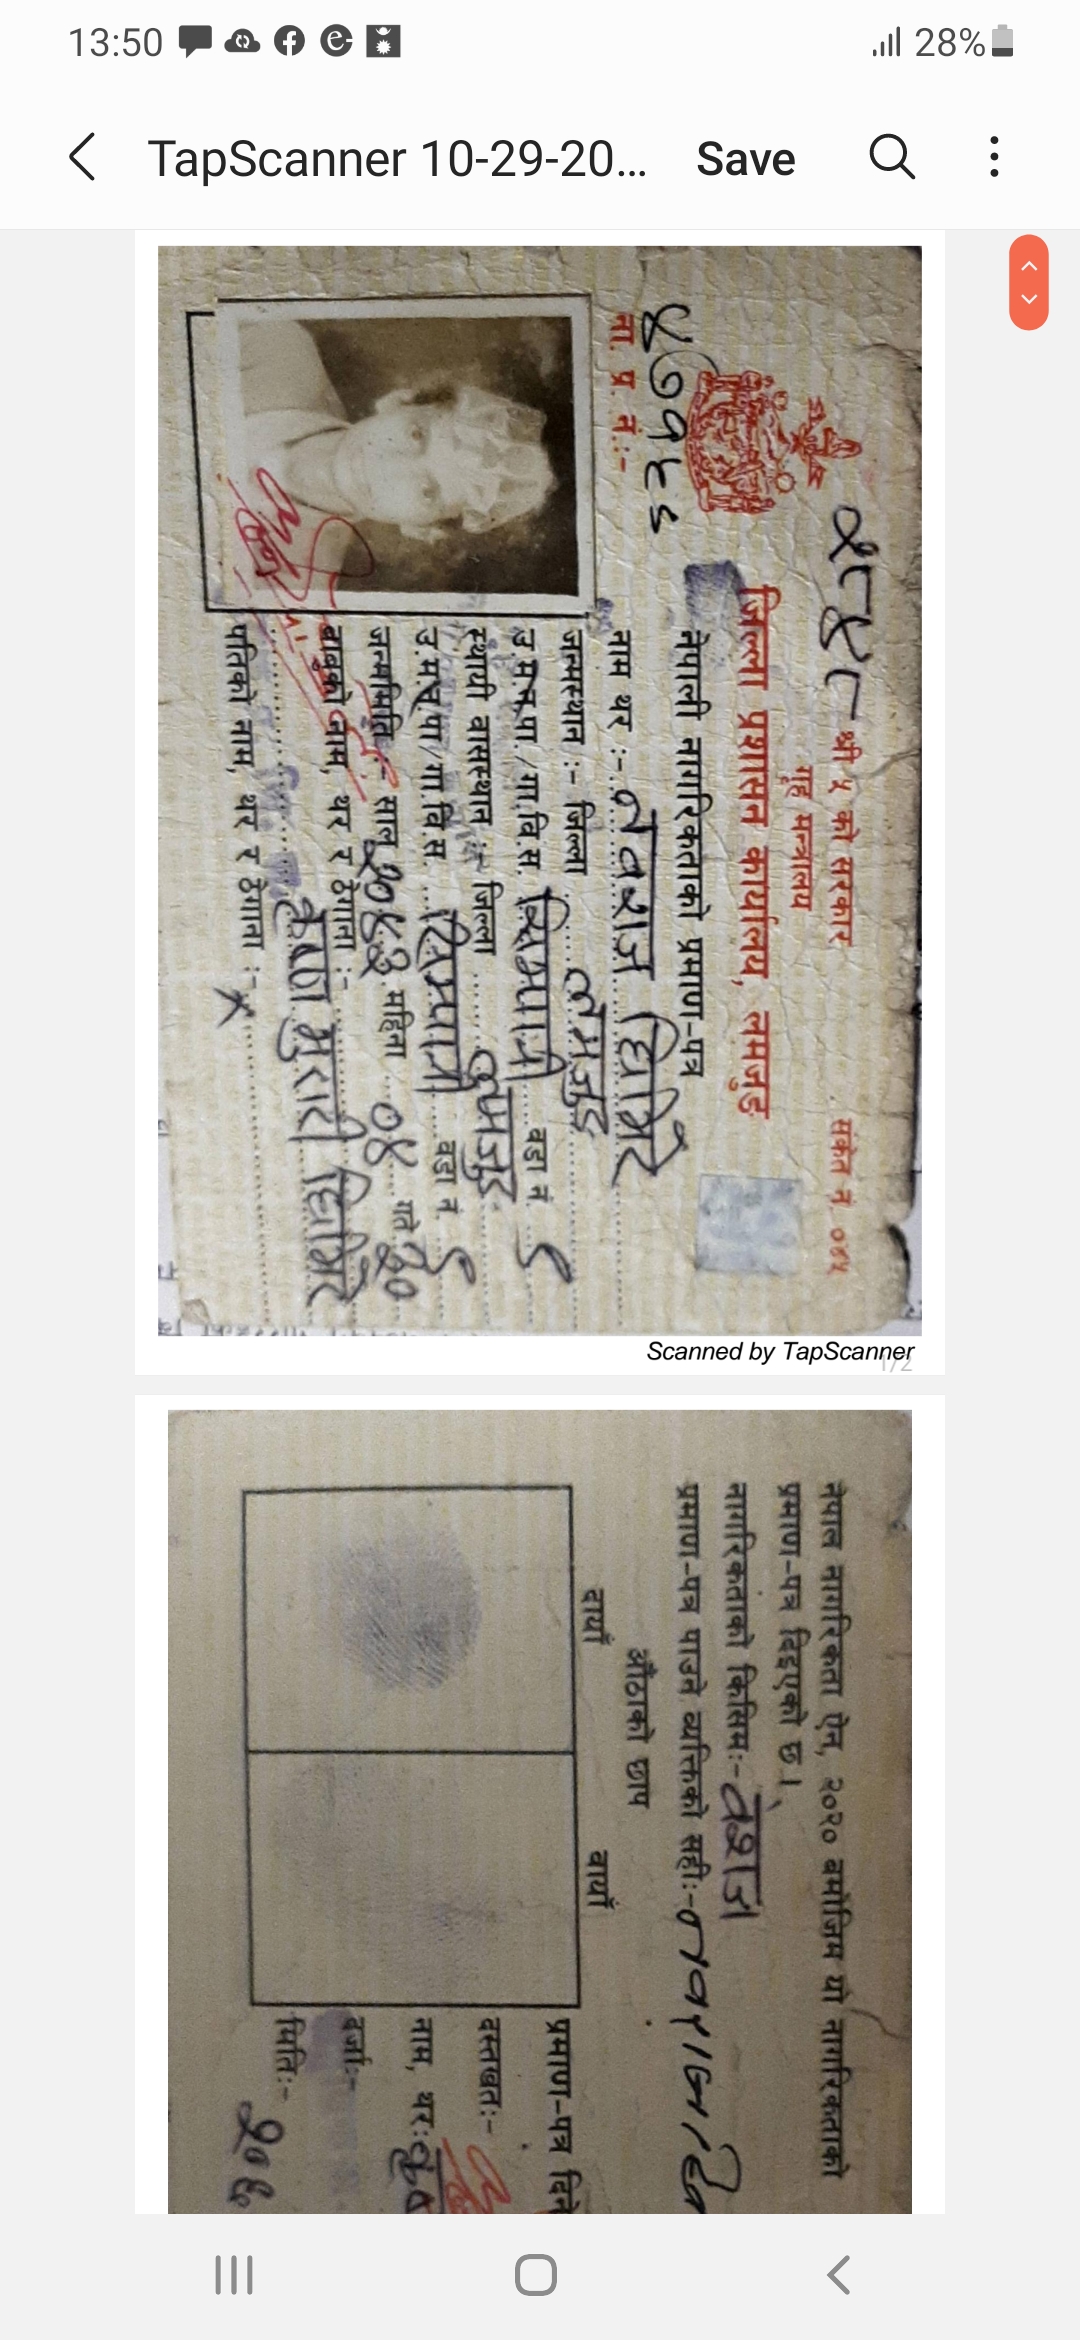 13:50
28%
TapScanner 10-29-20...
Save
श्री ५ को सरकार
संकेत नं. ०४५
गृह मन्त्रालय
जिल्ला प्रशासन कार्यालय, लमजुङ
नेपाली नागरिकताको प्रमाण-पत्र
ना. प्र. नं.:-
नाम थर :- नवराज घिमिरे
जन्मस्थान :- जिल्ला लमजुङ
उ.म.न.पा./गा.वि.स. वडा नं. ९
स्थायी वासस्थान :- जिल्ला लमजुङ
उ.म.न.पा/गा.वि.स. वडा नं. ९
जन्ममिति :- साल २०४३ महिना ०४ गते ३०
बाबुको नाम, थर र ठेगाना :-
मुरारी घिमिरे
पतिको नाम, थर र ठेगाना :- x
Scanned by TapScanner
1/2
नेपाल नागरिकता ऐन, २०२० बमोजिम यो नागरिकताको
प्रमाण-पत्र दिइएको छ।
नागरिकताको किसिम:- वंशज
प्रमाण-पत्र पाउने व्यक्तिको सही:-
औंठाको छाप
दायाँ
बायाँ
प्रमाण-पत्र दिने
दस्तखत:-
नाम, थर:
दर्जा:-
मिति:-